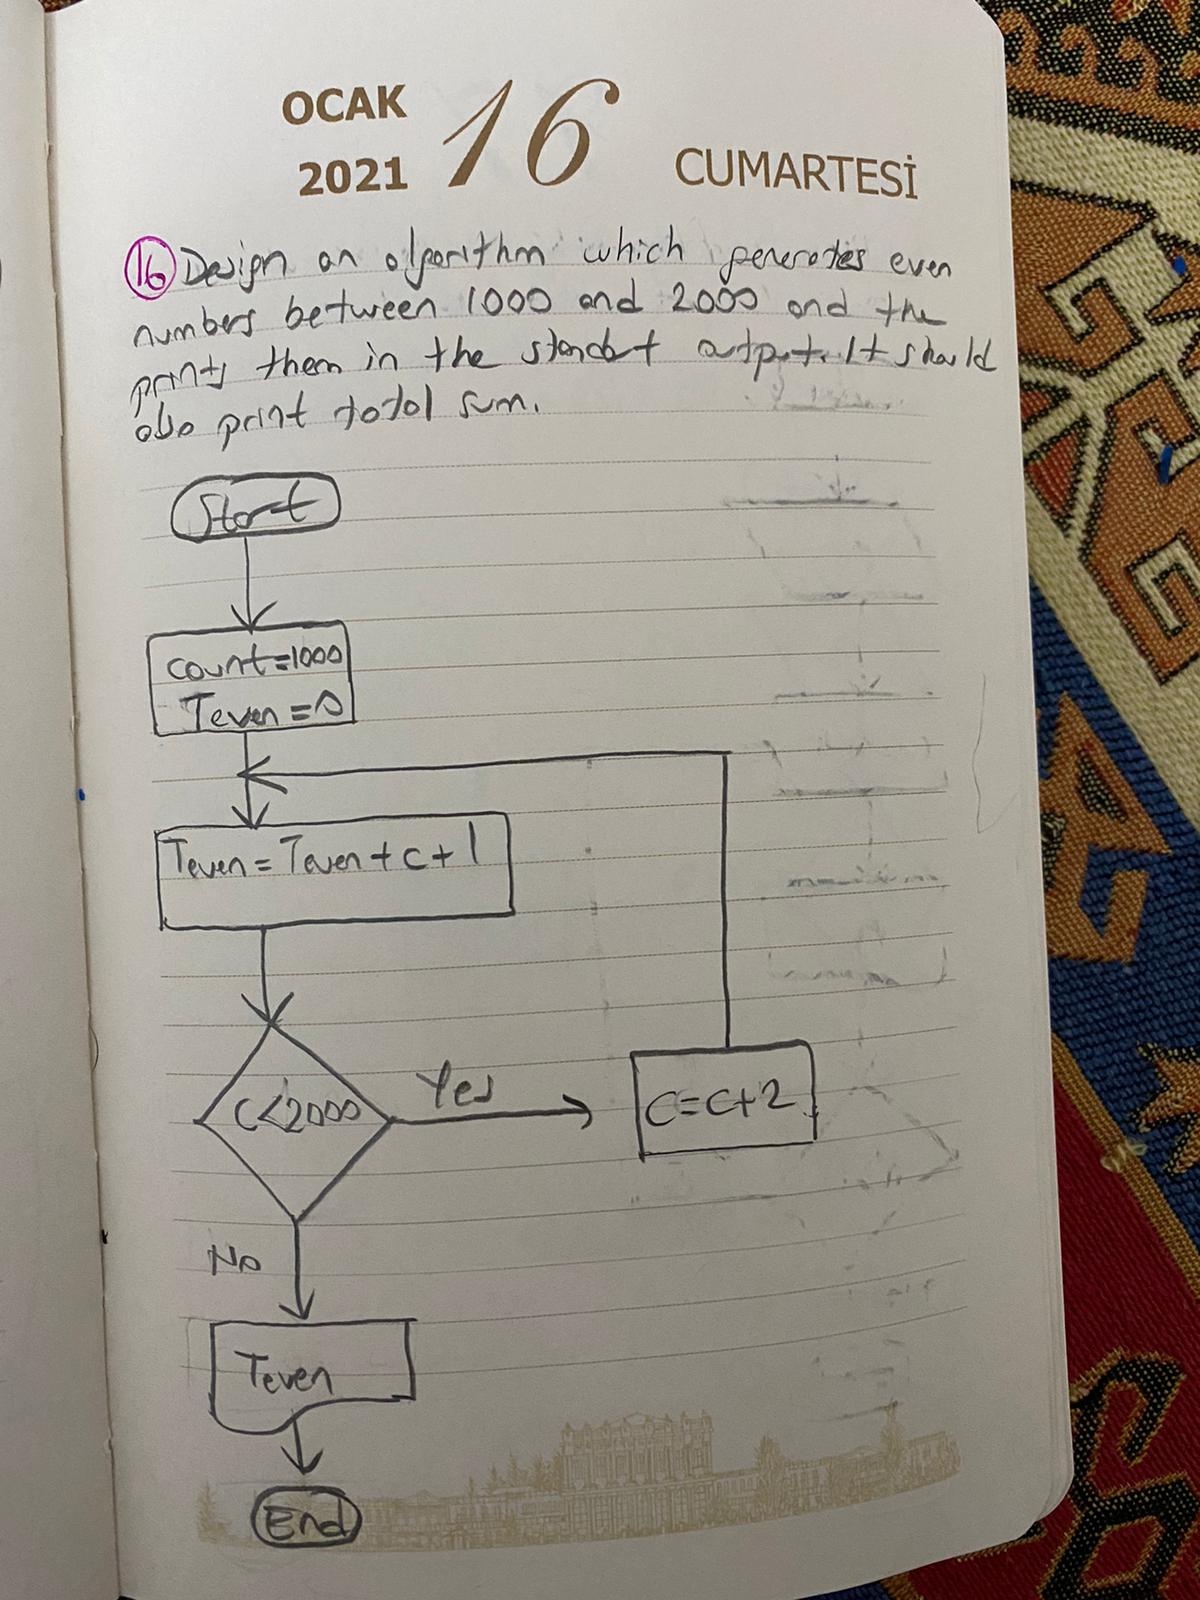 OCAK
2021
16
CUMARTESİ
16 Design an algorithm which generates even
numbers between 1000 and 2000 and the
prints them in the standart output. It should
also print total sum.
Start
count=1000
Teven=0
Teven=Teven+c+1
C<2000
Yes
C=C+2
No
Teven
End